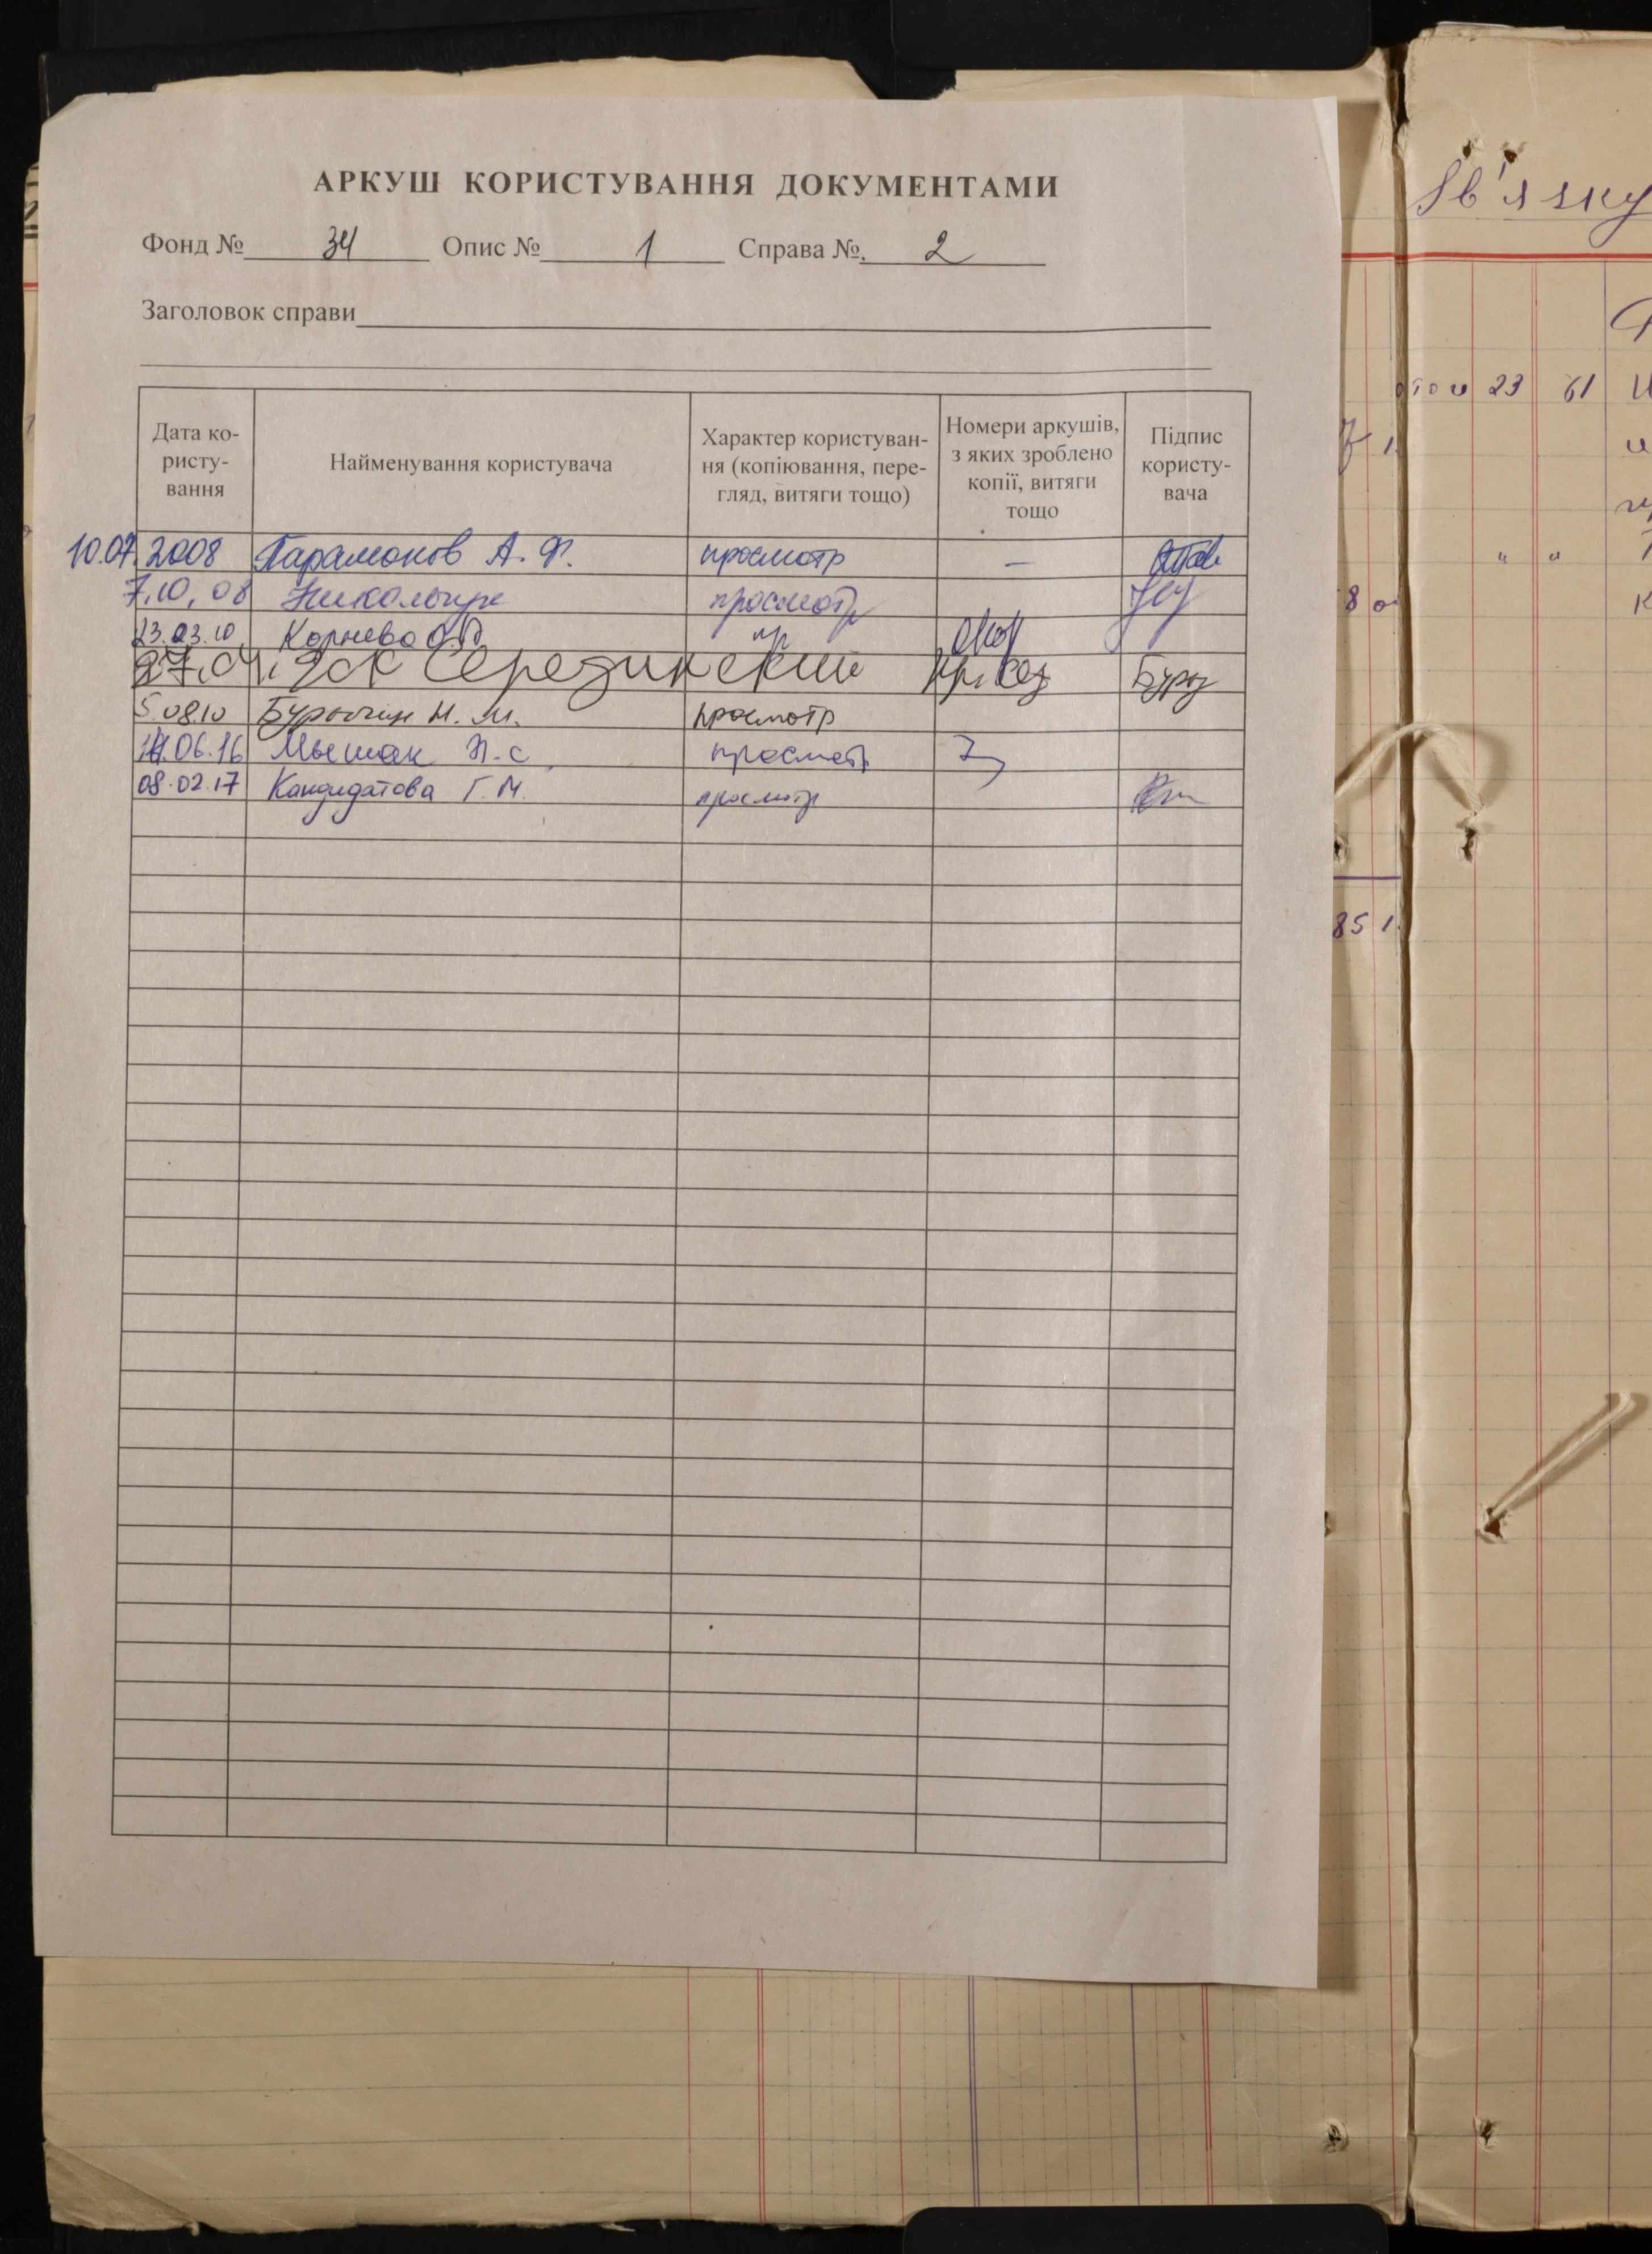 АРКУШ КОРИСТУВАННЯ ДОКУМЕНТАМИ
Фонд № 34 Опис № 1 Справа № 2
Заголовок справи
Дата ко-
ристу-
вання
Найменування користувача
Характер користуван-
ня (копіювання, пере-
гляд, витяги тощо)
Номери аркушів,
з яких зроблено
копії, витяги
тощо
Підпис
користу-
вача
10.07.2008 Парамонов А. Ф. просмотр —
7.10.08 просмотр
23.03.10 Корнева пр
27.04. Серединский
5.08.10 Н. М. просмотр
06.16 Мышак П. С просмотр
08.02.17 Кандидатова Г. М. просмотр
Зв'язку
23 61
" "
8
85 1